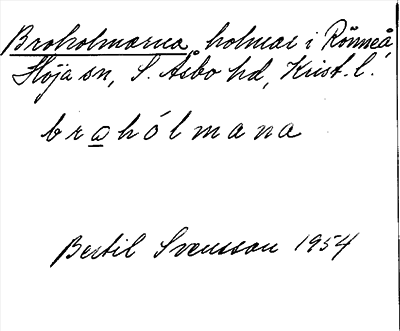 Broholmarna, holmar i Rönneå,
Höja sn, S. Åsbo hd, Krist. l.
brahólmana
Bertil Svensson 1954